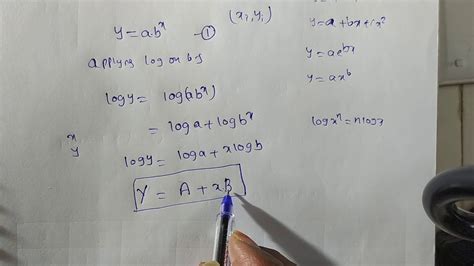 y = a.b^x — ①
applying log on b.s
log y = log(ab^x)
= log a + log b^x
log y = log a + x log b
Y = A + xB
x
y
(x_i, y_i)
y = a + bx + cx²
y = ae^bx
y = ax^b
log x^n = n log x